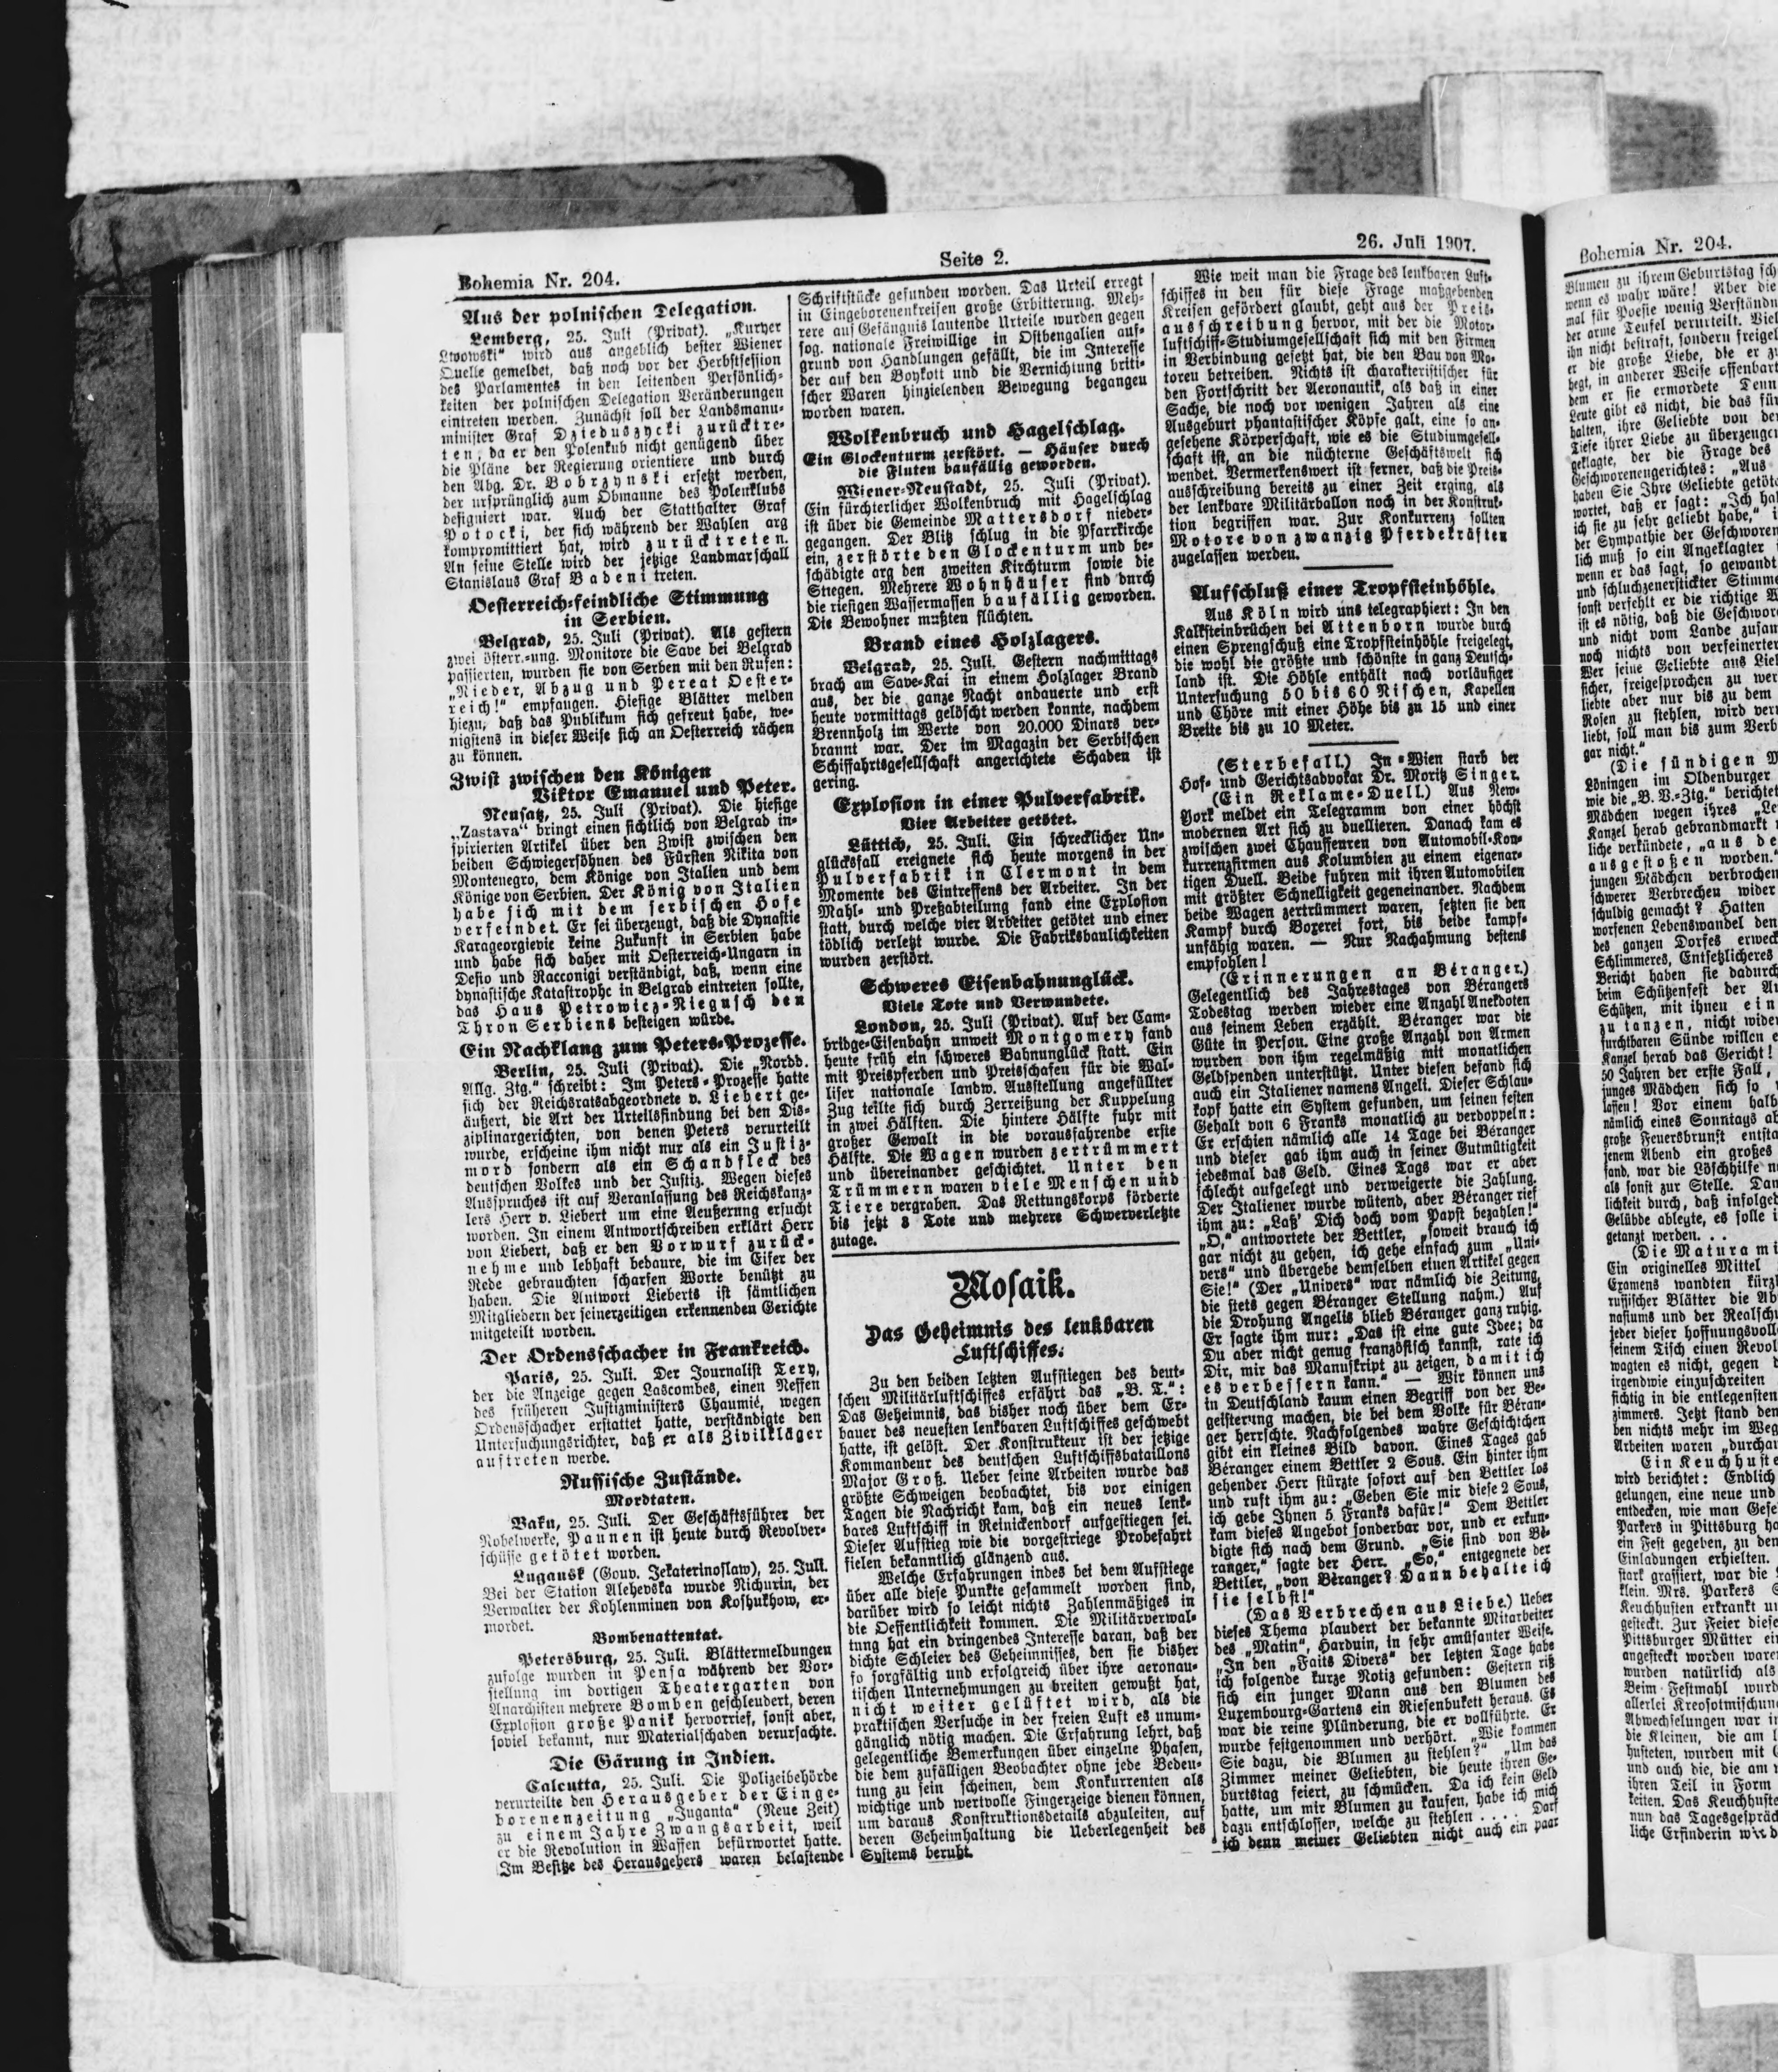 Bohemia Nr. 204.
Seite 2.
26. Juli 1907.
Aus der polnischen Delegation.
Lemberg, 25. Juli (Privat). „Kuryer
Lwowski“ wird aus angeblich bester Wiener
Quelle gemeldet, daß noch vor der Herbstsession
des Parlamentes in den leitenden Persönlich-
keiten der polnischen Delegation Veränderungen
eintreten werden. Zunächst soll der Landsmann-
minister Graf Dzieduszycki zurücktre-
ten, da er den Polenkub nicht genügend über
die Pläne der Regierung orientiere und durch
den Abg. Dr. Bobrzynski ersetzt werden,
der ursprünglich zum Obmanne des Polenklubs
designiert war. Auch der Statthalter Graf
Potocki, der sich während der Wahlen arg
kompromittiert hat, wird zurücktreten.
An seine Stelle wird der jetzige Landmarschall
Stanislaus Graf Badeni treten.
Oesterreich-feindliche Stimmung
in Serbien.
Belgrad, 25. Juli (Privat). Als gestern
zwei österr.-ung. Monitore die Save bei Belgrad
passierten, wurden sie von Serben mit den Rufen:
„Nieder, Abzug und Pereat Oester-
reich!“ empfangen. Hiesige Blätter melden
hiezu, daß das Publikum sich gefreut habe, we-
nigstens in dieser Weise sich an Oesterreich rächen
zu können.
Zwist zwischen den Königen
Viktor Emanuel und Peter.
Neusatz, 25. Juli (Privat). Die hiesige
„Zastava“ bringt einen sichtlich von Belgrad in-
spirierten Artikel über den Zwist zwischen den
beiden Schwiegersöhnen des Fürsten Nikita von
Montenegro, dem Könige von Italien und dem
Könige von Serbien. Der König von Italien
habe sich mit dem serbischen Hofe
verfeindet. Er sei überzeugt, daß die Dynastie
Karageorgievic keine Zukunft in Serbien habe
und habe sich daher mit Oesterreich-Ungarn in
Desio und Racconigi verständigt, daß, wenn eine
dynastische Katastrophe in Belgrad eintreten sollte,
das Haus Petrowicz-Niegusch den
Thron Serbiens besteigen würde.
Ein Nachklang zum Peters-Prozesse.
Berlin, 25. Juli (Privat). Die „Nordd.
Allg. Ztg.“ schreibt: Im Peters-Prozesse hatte
sich der Reichsratsabgeordnete v. Liebert ge-
äußert, die Art der Urteilsfindung bei den Dis-
ziplinargerichten, von denen Peters verurteilt
wurde, erscheine ihm nicht nur als ein Justiz-
mord sondern als ein Schandfleck des
deutschen Volkes und der Justiz. Wegen dieses
Ausspruches ist auf Veranlassung des Reichskanz-
lers Herr v. Liebert um eine Aeußerung ersucht
worden. In einem Antwortschreiben erklärt Herr
von Liebert, daß er den Vorwurf zurück-
nehme und lebhaft bedaure, die im Eifer der
Rede gebrauchten scharfen Worte benützt zu
haben. Die Antwort Lieberts ist sämtlichen
Mitgliedern der seinerzeitigen erkennenden Gerichte
mitgeteilt worden.
Der Ordensschacher in Frankreich.
Paris, 25. Juli. Der Journalist Tery,
der die Anzeige gegen Lascombes, einen Neffen
des früheren Justizministers Chaumié, wegen
Ordensschacher erstattet hatte, verständigte den
Untersuchungsrichter, daß er als Zivilkläger
auftreten werde.
Russische Zustände.
Mordtaten.
Baku, 25. Juli. Der Geschäftsführer der
Nobelwerke, Paunen ist heute durch Revolver-
schüsse getötet worden.
Lugansk (Gouv. Jekaterinoslaw), 25. Juli.
Bei der Station Alehevska wurde Nichurin, der
Verwalter der Kohlenminen von Koshukhow, er-
mordet.
Bombenattentat.
Petersburg, 25. Juli. Blättermeldungen
zufolge wurden in Pensa während der Vor-
stellung im dortigen Theatergarten von
Anarchisten mehrere Bomben geschleudert, deren
Explosion große Panik hervorrief, sonst aber,
soviel bekannt, nur Materialschaden verursachte.
Die Gärung in Indien.
Calcutta, 25. Juli. Die Polizeibehörde
verurteilte den Herausgeber der Einge-
borenenzeitung „Juganta“ (Neue Zeit)
zu einem Jahre Zwangsarbeit, weil
er die Revolution in Waffen befürwortet hatte.
Im Besitze des Herausgebers waren belastende
Schriftstücke gefunden worden. Das Urteil erregt
in Eingeborenenkreisen große Erbitterung. Meh-
rere auf Gefängnis lautende Urteile wurden gegen
sog. nationale Freiwillige in Ostbengalien auf-
grund von Handlungen gefällt, die im Interesse
der auf den Boykott und die Vernichtung briti-
scher Waren hinzielenden Bewegung begangen
worden waren.
Wolkenbruch und Hagelschlag.
Ein Glockenturm zerstört. — Häuser durch
die Fluten baufällig geworden.
Wiener-Neustadt, 25. Juli (Privat).
Ein fürchterlicher Wolkenbruch mit Hagelschlag
ist über die Gemeinde Mattersdorf nieder-
gegangen. Der Blitz schlug in die Pfarrkirche
ein, zerstörte den Glockenturm und be-
schädigte arg den zweiten Kirchturm sowie die
Stiegen. Mehrere Wohnhäuser sind durch
die riesigen Wassermassen baufällig geworden.
Die Bewohner mußten flüchten.
Brand eines Holzlagers.
Belgrad, 25. Juli. Gestern nachmittags
brach am Save-Kai in einem Holzlager Brand
aus, der die ganze Nacht andauerte und erst
heute vormittags gelöscht werden konnte, nachdem
Brennholz im Werte von 20.000 Dinars ver-
brannt war. Der im Magazin der Serbischen
Schiffahrtsgesellschaft angerichtete Schaden ist
gering.
Explosion in einer Pulverfabrik.
Vier Arbeiter getötet.
Lüttich, 25. Juli. Ein schrecklicher Un-
glücksfall ereignete sich heute morgens in der
Pulverfabrik in Clermont in dem
Momente des Eintreffens der Arbeiter. In der
Mahl- und Preßabteilung fand eine Explosion
statt, durch welche vier Arbeiter getötet und einer
tödlich verletzt wurde. Die Fabriksbaulichkeiten
wurden zerstört.
Schweres Eisenbahnunglück.
Viele Tote und Verwundete.
London, 25. Juli (Privat). Auf der Cam-
bridge-Eisenbahn unweit Montgomery fand
heute früh ein schweres Bahnunglück statt. Ein
mit Preispferden und Preisschafen für die Wal-
liser nationale landw. Ausstellung angefüllter
Zug teilte sich durch Zerreißung der Kuppelung
in zwei Hälften. Die hintere Hälfte fuhr mit
großer Gewalt in die vorausfahrende erste
Hälfte. Die Wagen wurden zertrümmert
und übereinander geschichtet. Unter den
Trümmern waren viele Menschen und
Tiere vergraben. Das Rettungskorps förderte
bis jetzt 8 Tote und mehrere Schwerverletzte
zutage.
Mosaik.
Das Geheimnis des lenkbaren
Luftschiffes.
Zu den beiden letzten Aufstiegen des deut-
schen Militärluftschiffes erfährt das „B. T.“:
Das Geheimnis, das bisher noch über dem Er-
bauer des neuesten lenkbaren Luftschiffes geschwebt
hatte, ist gelöst. Der Konstrukteur ist der jetzige
Kommandeur des deutschen Luftschiffsbataillons
Major Groß. Ueber seine Arbeiten wurde das
größte Schweigen beobachtet, bis vor einigen
Tagen die Nachricht kam, daß ein neues lenk-
bares Luftschiff in Reinickendorf aufgestiegen sei.
Dieser Aufstieg wie die vorgestriege Probefahrt
fielen bekanntlich glänzend aus.
Welche Erfahrungen indes bei dem Aufstiege
über alle diese Punkte gesammelt worden sind,
darüber wird so leicht nichts Zahlenmäßiges in
die Oeffentlichkeit kommen. Die Militärverwal-
tung hat ein dringendes Interesse daran, daß der
dichte Schleier des Geheimnisses, den sie bisher
so sorgfältig und erfolgreich über ihre aeronau-
tischen Unternehmungen zu breiten gewußt hat,
nicht weiter gelüftet wird, als die
praktischen Versuche in der freien Luft es unum-
gänglich nötig machen. Die Erfahrung lehrt, daß
gelegentliche Bemerkungen über einzelne Phasen,
die dem zufälligen Beobachter ohne jede Bedeu-
tung zu sein scheinen, dem Konkurrenten als
wichtige und wertvolle Fingerzeige dienen können,
um daraus Konstruktionsdetails abzuleiten, auf
deren Geheimhaltung die Ueberlegenheit des
Systems beruht.
Wie weit man die Frage des lenkbaren Luft-
schiffes in den für diese Frage maßgebenden
Kreisen gefördert glaubt, geht aus der Preis-
ausschreibung hervor, mit der die Motor-
luftschiff-Studiumgesellschaft sich mit den Firmen
in Verbindung gesetzt hat, die den Bau von Mo-
toren betreiben. Nichts ist charakteristischer für
den Fortschritt der Aeronautik, als daß in einer
Sache, die noch vor wenigen Jahren als eine
Ausgeburt phantastischer Köpfe galt, eine so an-
gesehene Körperschaft, wie es die Studiumgesell-
schaft ist, an die nüchterne Geschäftswelt sich
wendet. Vermerkenswert ist ferner, daß die Preis-
ausschreibung bereits zu einer Zeit erging, als
der lenkbare Militärballon noch in der Konstruk-
tion begriffen war. Zur Konkurrenz sollten
Motore von zwanzig Pferdekräften
zugelassen werden.
Aufschluß einer Tropfsteinhöhle.
Aus Köln wird uns telegraphiert: In den
Kalksteinbrüchen bei Attenborn wurde durch
einen Sprengschuß eine Tropfsteinhöhle freigelegt,
die wohl die größte und schönste in ganz Deutsch-
land ist. Die Höhle enthält nach vorläufiger
Untersuchung 50 bis 60 Nischen, Kapellen
und Chöre mit einer Höhe bis zu 15 und einer
Breite bis zu 10 Meter.
(Sterbefall.) In Wien starb der
Hof- und Gerichtsadvokat Dr. Moritz Singer.
(Ein Reklame-Duell.) Aus New-
York meldet ein Telegramm von einer höchst
modernen Art sich zu duellieren. Danach kam es
zwischen zwei Chauffeuren von Automobil-Kon-
kurrenzfirmen aus Kolumbien zu einem eigenar-
tigen Duell. Beide fuhren mit ihren Automobilen
mit größter Schnelligkeit gegeneinander. Nachdem
beide Wagen zertrümmert waren, setzten sie den
Kampf durch Boxerei fort, bis beide kampf-
unfähig waren. — Nur Nachahmung bestens
empfohlen!
(Erinnerungen an Béranger.)
Gelegentlich des Jahrestages von Bérangers
Todestag werden wieder eine Anzahl Anekdoten
aus seinem Leben erzählt. Béranger war die
Güte in Person. Eine große Anzahl von Armen
wurden von ihm regelmäßig mit monatlichen
Geldspenden unterstützt. Unter diesen befand sich
auch ein Italiener namens Angeli. Dieser Schlau-
kopf hatte ein System gefunden, um seinen festen
Gehalt von 6 Franks monatlich zu verdoppeln:
Er erschien nämlich alle 14 Tage bei Béranger
und dieser gab ihm auch in seiner Gutmütigkeit
jedesmal das Geld. Eines Tags war er aber
schlecht aufgelegt und verweigerte die Zahlung.
Der Italiener wurde wütend, aber Béranger rief
ihm zu: „Laß’ Dich doch vom Papst bezahlen!“
„O,“ antwortete der Bettler, „soweit brauch ich
gar nicht zu gehen, ich gehe einfach zum „Uni-
vers“ und übergebe demselben einen Artikel gegen
Sie!“ (Der „Univers“ war nämlich die Zeitung,
die stets gegen Béranger Stellung nahm.) Auf
die Drohung Angelis blieb Béranger ganz ruhig.
Er sagte ihm nur: „Das ist eine gute Idee; da
Du aber nicht genug französisch kannst, rate ich
Dir, mir das Manuskript zu zeigen, damit ich
es verbessern kann.“ — Wir können uns
in Deutschland kaum einen Begriff von der Be-
geisterung machen, die bei dem Volke für Béran-
ger herrschte. Nachfolgendes wahre Geschichtchen
gibt ein kleines Bild davon. Eines Tages gab
Béranger einem Bettler 2 Sous. Ein hinter ihm
gehender Herr stürzte sofort auf den Bettler los
und ruft ihm zu: „Geben Sie mir diese 2 Sous,
ich gebe Ihnen 5 Franks dafür!“ Dem Bettler
kam dieses Angebot sonderbar vor, und er erkun-
digte sich nach dem Grund. „Sie sind von Bé-
ranger,“ sagte der Herr. „So,“ entgegnete der
Bettler, „von Béranger? Dann behalte ich
sie selbst!“
(Das Verbrechen aus Liebe.) Ueber
dieses Thema plaudert der bekannte Mitarbeiter
des „Matin“, Harduin, in sehr amüsanter Weise.
„In den „Faits Divers“ der letzten Tage habe
ich folgende kurze Notiz gefunden: Gestern riß
sich ein junger Mann aus den Blumen des
Luxembourg-Gartens ein Riesenbukett heraus. Es
war die reine Plünderung, die er vollführte. Er
wurde festgenommen und verhört. „Wie kommen
Sie dazu, die Blumen zu stehlen?“ „Um das
Zimmer meiner Geliebten, die heute ihren Ge-
burtstag feiert, zu schmücken. Da ich kein Geld
hatte, um mir Blumen zu kaufen, habe ich mich
dazu entschlossen, welche zu stehlen .... Darf
ich denn meiner Geliebten nicht auch ein paar
Bohemia Nr. 204.
Blumen zu ihrem Geburtstag
wenn es wahr wäre! Aber die
mal für Poesie wenig
der arme Teufel verurteilt.
ihn nicht bestraft, sondern
er die große Liebe, die er
hegt, in anderer Weise
dem er sie ermordete
Leute gibt es nicht, die das
halten, ihre Geliebte von
Tiefe ihrer Liebe zu
geklagte, der die Frage des
Geschworenengerichtes: „Aus
haben Sie Ihre Geliebte
wortet, daß er sagt: „Ich
ich sie zu sehr geliebt habe,“
der Sympathie der
lich muß so ein Angeklagter
wenn er das sagt, so
und schluchzenerstickter
sonst verfehlt er die richtige
ist es nötig, daß die
und nicht vom Lande
noch nichts von
Wer seine Geliebte aus
sicher, freigesprochen zu
liebte aber nur bis zu dem
Rosen zu stehlen, wird
liebt, soll man bis zum
gar nicht.“
(Die sündigen
Löningen im Oldenburger
wie die „B. V.-Ztg.“ berichtet
Mädchen wegen ihres
Kanzel herab gebrandmarkt
liche verkündete, „aus
ausgestoßen worden.“
jungen Mädchen verbrochen
schwerer Verbrechen wider
schuldig gemacht? Hatten
worfenen Lebenswandel den
des ganzen Dorfes
Schlimmeres, Entsetzlicheres
Bericht haben sie dadurch
beim Schützenfest der
Schützen, mit ihnen ein
zu tanzen, nicht
furchtbaren Sünde willen
Kanzel herab das Gericht!
50 Jahren der erste Fall,
junges Mädchen sich so
lassen! Vor einem
nämlich eines Sonntags
große Feuersbrunst
jenem Abend ein großes
fand, war die Löschhilfe
als sonst zur Stelle.
lichkeit durch, daß
Gelübde ablegte, es solle
getanzt werden. . .
(Die Matura
Ein originelles Mittel
Examens wandten
russischer Blätter die
nasiums und der
jeder dieser
seinem Tisch einen
wagten es nicht, gegen
irgendwie einzuschreiten
sichtig in die entlegensten
zimmers. Jetzt stand den
ben nichts mehr im
Arbeiten waren
Ein
wird berichtet: Endlich
gelungen, eine neue und
entdecken, wie man
Parkers in Pittsburg
ein Fest gegeben, zu
Einladungen erhielten.
stark grassiert, war die
klein. Mrs. Parkers
Keuchhusten erkrankt
gesteckt. Zur Feier
Pittsburger Mütter
angesteckt worden
wurden natürlich als
Beim Festmahl
allerlei
Abwechselungen war
die Kleinen, die am
husteten, wurden mit
und auch die, die am
ihren Teil in Form
keiten. Das
nun das
liche Erfinderin